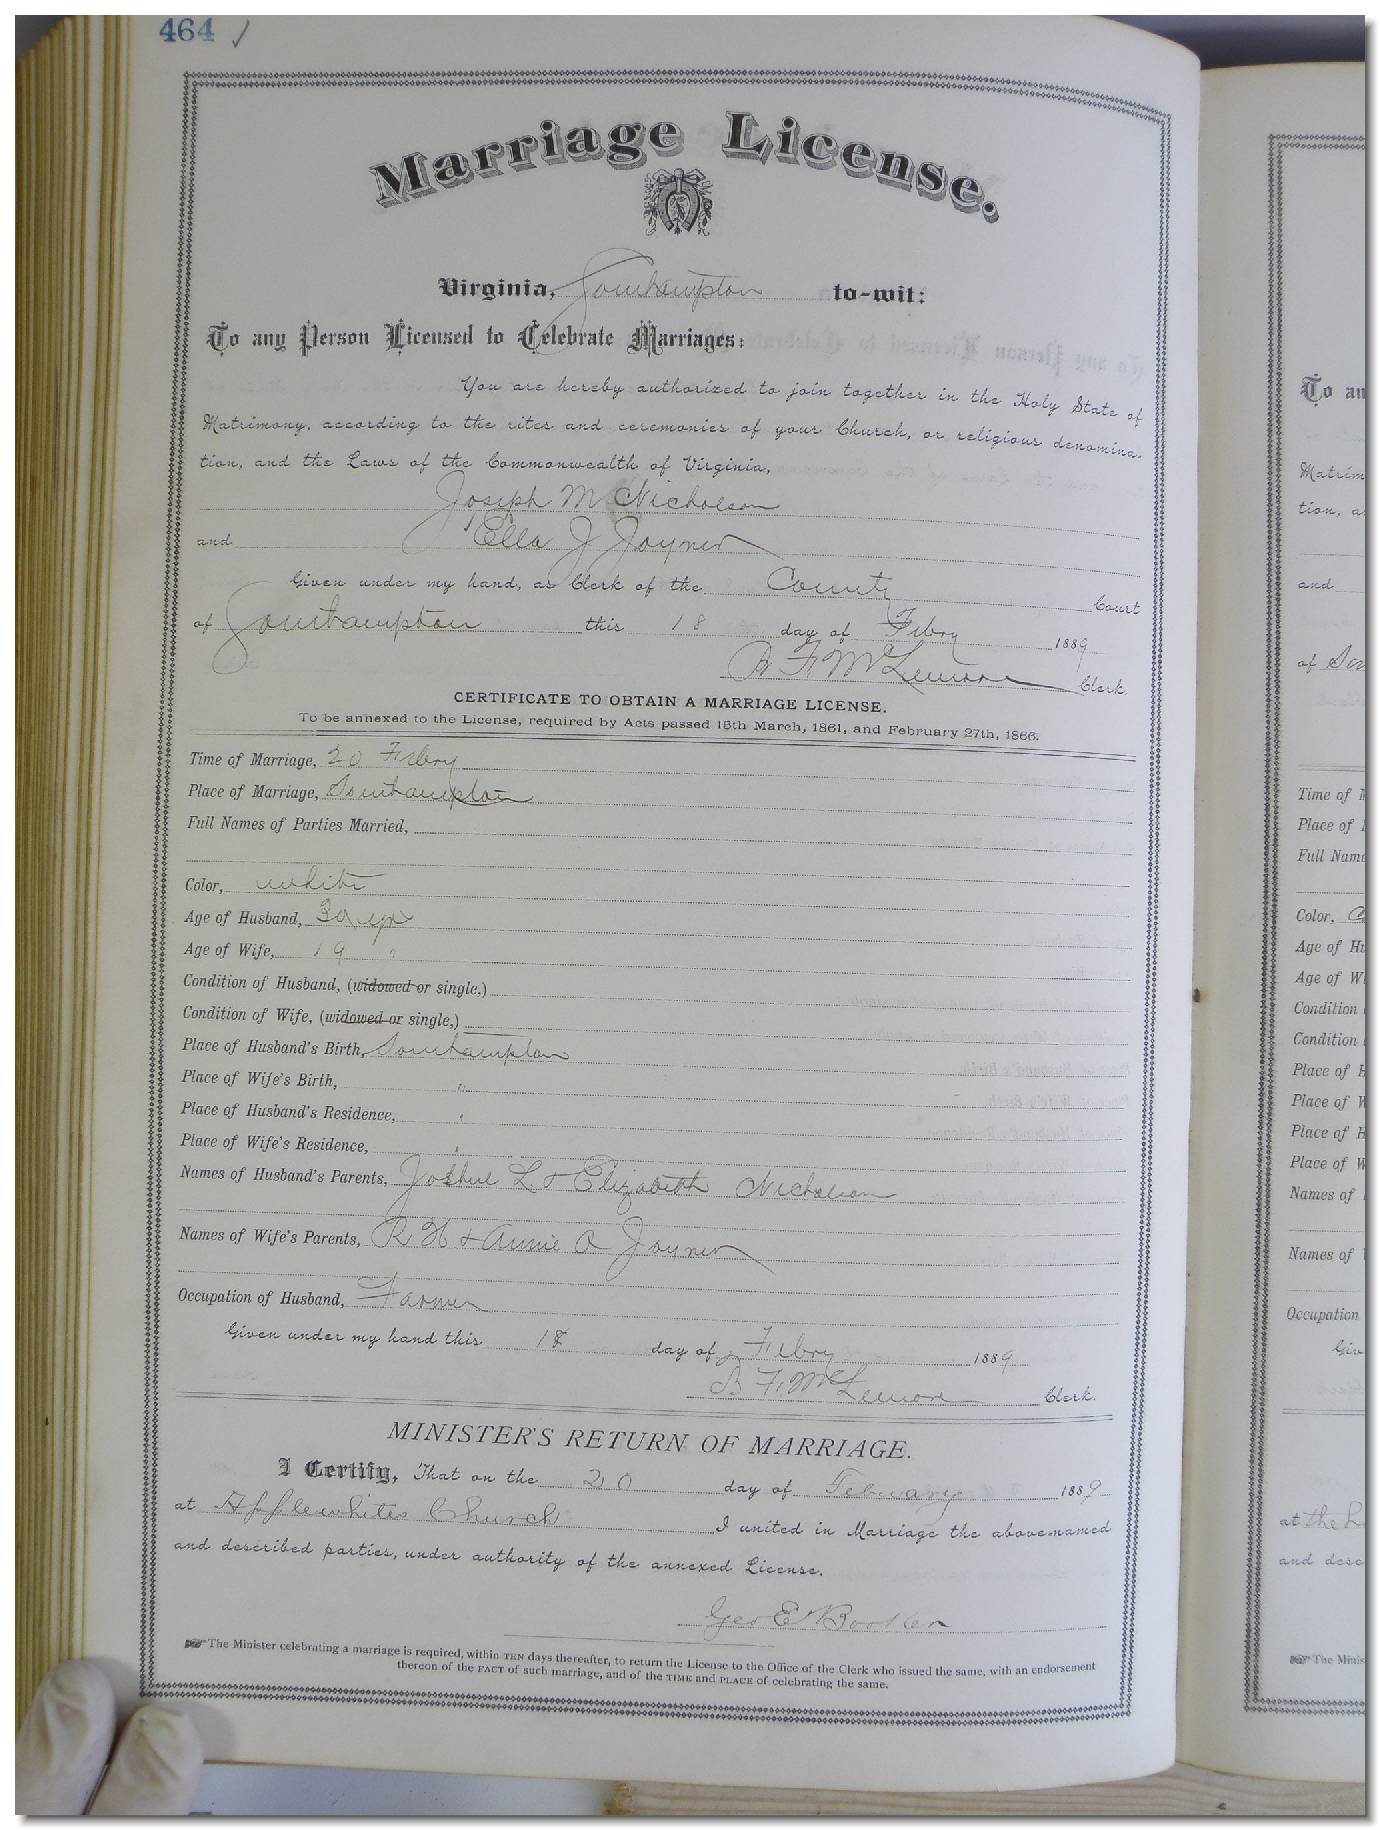 464 ✓
Marriage License.
Virginia, Southampton to-wit:
To any Person Licensed to Celebrate Marriages:
You are hereby authorized to join together in the Holy State of
Matrimony, according to the rites and ceremonies of your Church, or religious denomina-
tion, and the Laws of the Commonwealth of Virginia,
Joseph M Nicholson
and Ella J Joyner
Given under my hand, as Clerk of the County Court
of Southampton this 18 day of Febry 1889
B F McLemore Clerk
CERTIFICATE TO OBTAIN A MARRIAGE LICENSE.
To be annexed to the License, required by Acts passed 15th March, 1861, and February 27th, 1866.
Time of Marriage, 20 Febry
Place of Marriage, Southampton
Full Names of Parties Married,
Color, white
Age of Husband, yrs
Age of Wife, 19 "
Condition of Husband, (widowed or single,)
Condition of Wife, (widowed or single,)
Place of Husband's Birth, Southampton
Place of Wife's Birth, "
Place of Husband's Residence, "
Place of Wife's Residence, "
Names of Husband's Parents, L & Elizabeth Nicholson
Names of Wife's Parents, R H & Annie Joyner
Occupation of Husband, Farmer
Given under my hand this 18 day of Febry 1889
B F McLemore Clerk.
MINISTER'S RETURN OF MARRIAGE.
I Certify, That on the 20 day of February 1889
at Applewhites Church I united in Marriage the above-named
and described parties, under authority of the annexed License.
Geo E Booker
The Minister celebrating a marriage is required, within TEN days thereafter, to return the License to the Office of the Clerk who issued the same, with an endorsement
thereon of the FACT of such marriage, and of the TIME and PLACE of celebrating the same.
To an
Matrim
tion, a
and
of Sou
Time of M
Place of
Full Name
Color,
Age of Hu
Age of Wi
Condition
Condition
Place of H
Place of W
Place of H
Place of W
Names of
Names of
Occupation
Giv
at the
and desc
The Minis